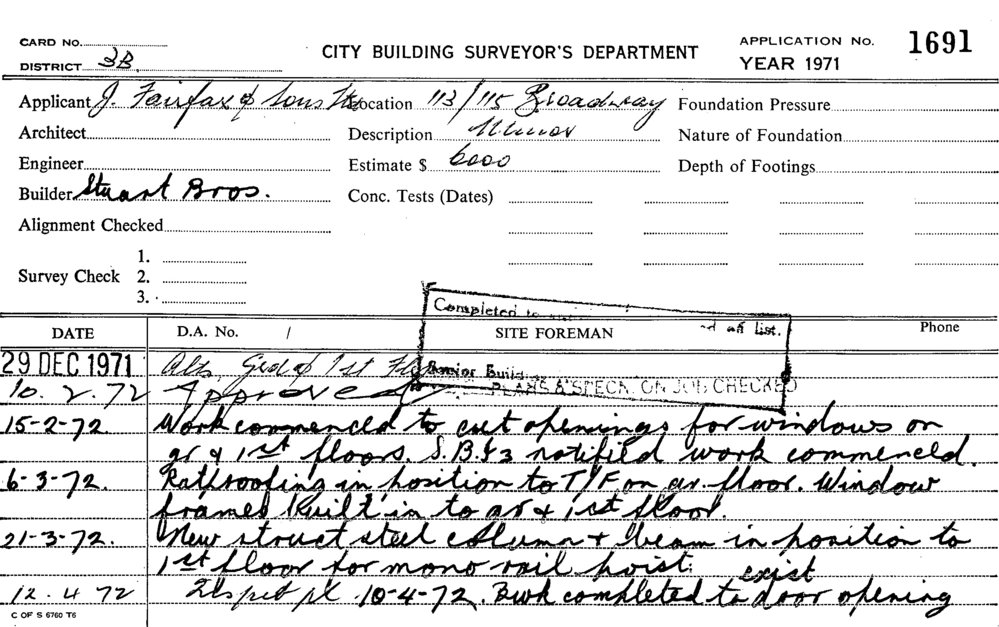 CARD No.
DISTRICT 3B
CITY BUILDING SURVEYOR'S DEPARTMENT
APPLICATION No. 1691
YEAR 1971
Applicant J. Fairfax & Sons Location 113/115 Broadway Foundation Pressure
Architect Description Minor Nature of Foundation
Engineer Estimate $ 6000 Depth of Footings
Builder Stuart Bros. Conc. Tests (Dates)
Alignment Checked
Survey Check
1.
2.
3.
Completed to
list.
DATE D.A. No. / SITE FOREMAN Phone
29 DEC 1971 Alts Grd & 1st
Senior Build
PLANS & SPECN. ON JOB CHECKED
10. 2. 72 Approved
15-2-72. Work commenced to cut openings for windows on
gr & 1st floors. S.B.I. 3 notified work commenced.
6-3-72. Ratproofing in position to T/F on gr. floor. Window
frames built in to gr & 1st floor.
21-3-72. New struct steel column & beam in position to
1st floor for mono rail hoist.
12. 4 72 10-4-72. Bwk completed to exist door opening
C OF S 6760 T6